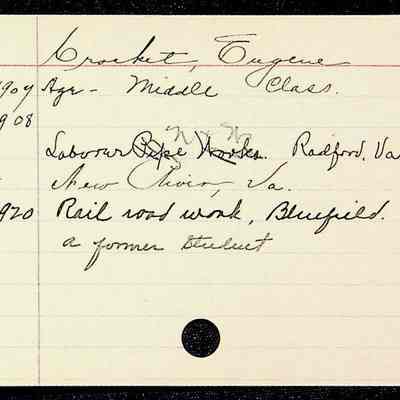 Crocket, Eugene
1907 Agr - Middle Class.
1908
Labourer Pipe Works. Radford, Va
New River, Va.
1920 Rail road work, Bluefield.
a former student